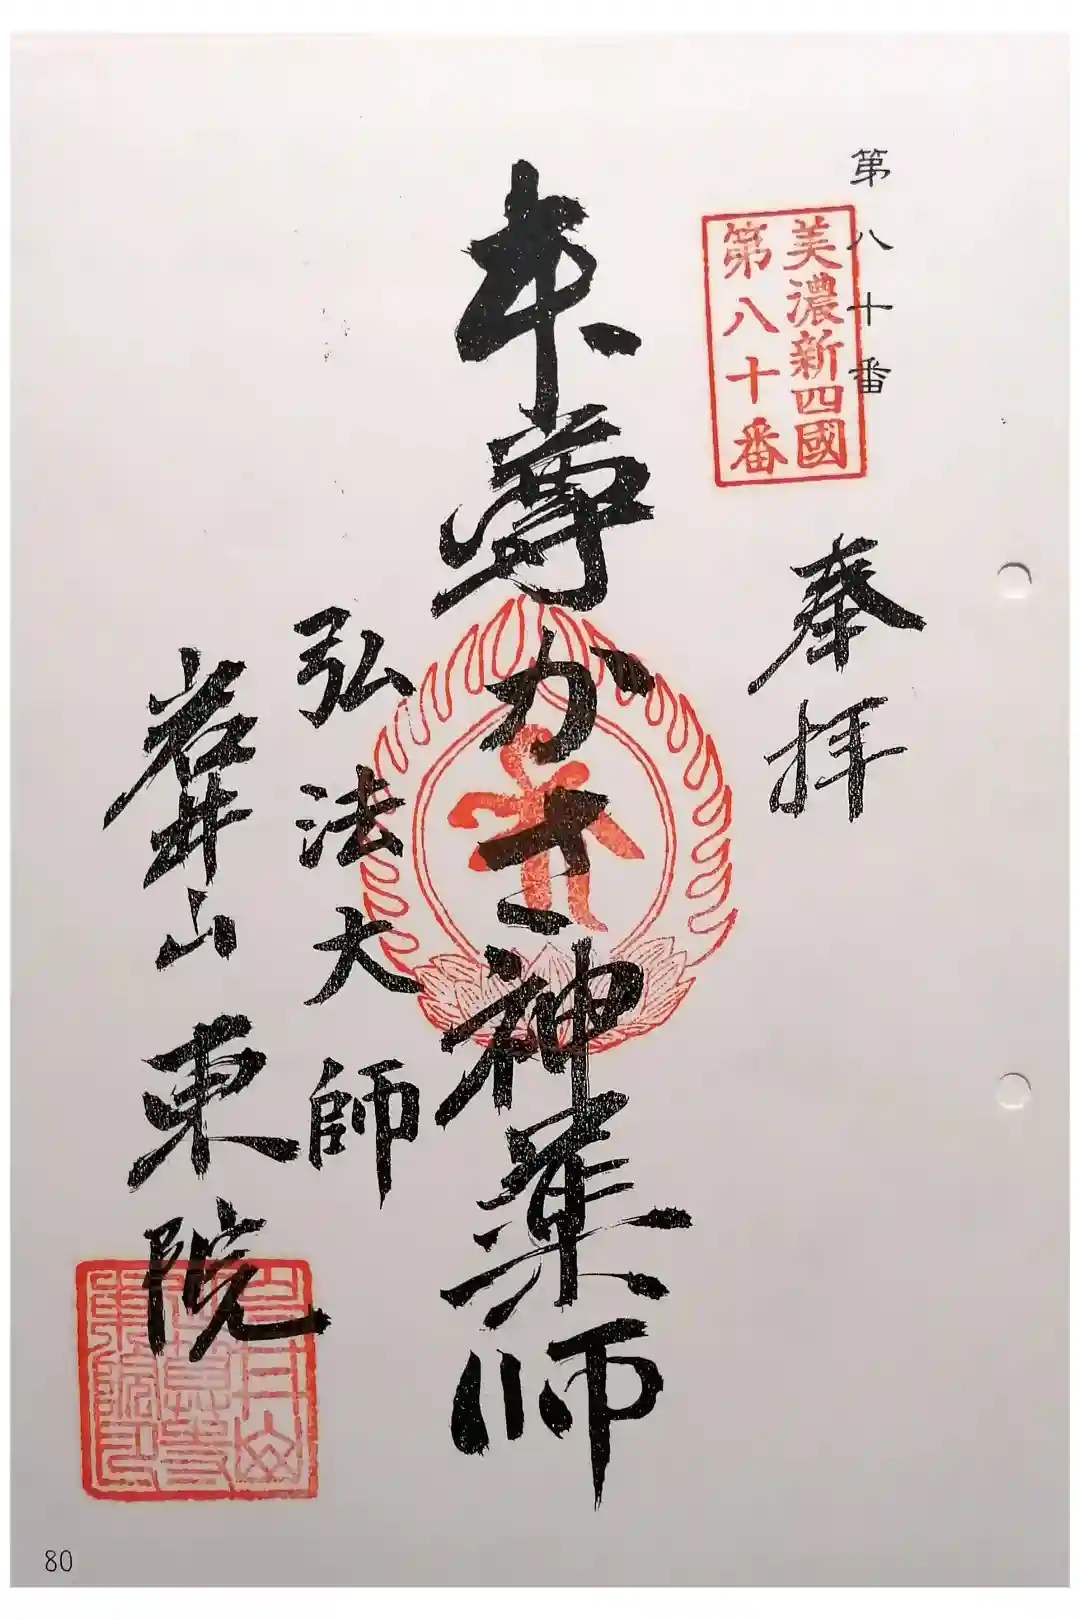 第八十番
美濃新四國
第八十番
奉拝
本尊かさ神薬師
弘法大師
岩井山東院
80